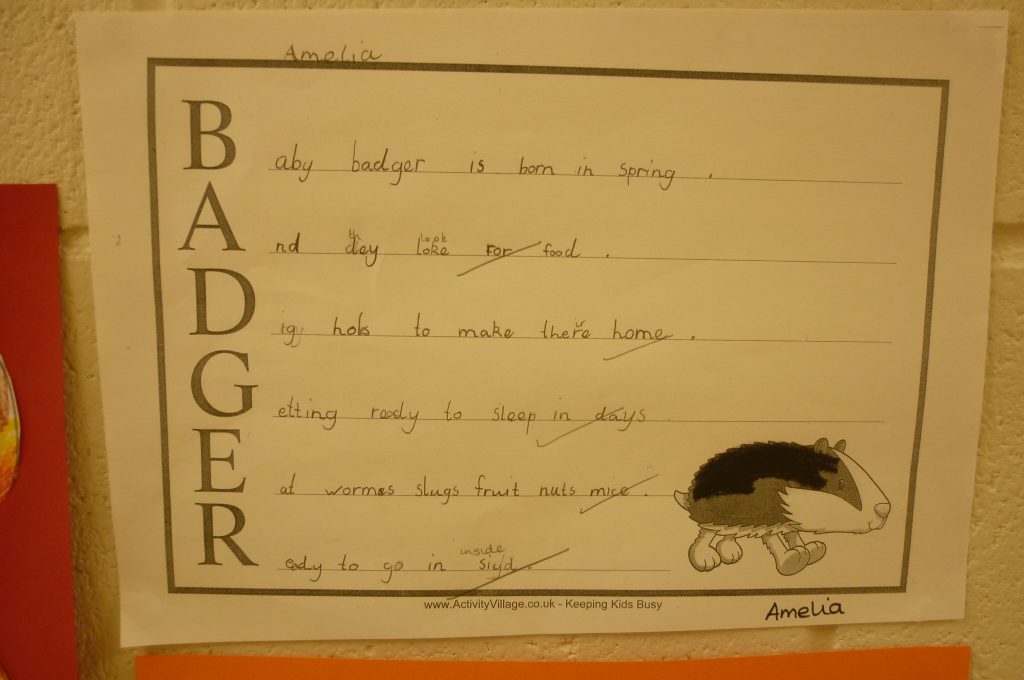 Amelia
Baby badger is born in spring .
And they look loke for food .
Dig holes to make there home .
Getting ready to sleep in days
Eat wormes slugs fruit nuts mice .
Ready to go in inside siyd .
www.ActivityVillage.co.uk - Keeping Kids Busy
Amelia